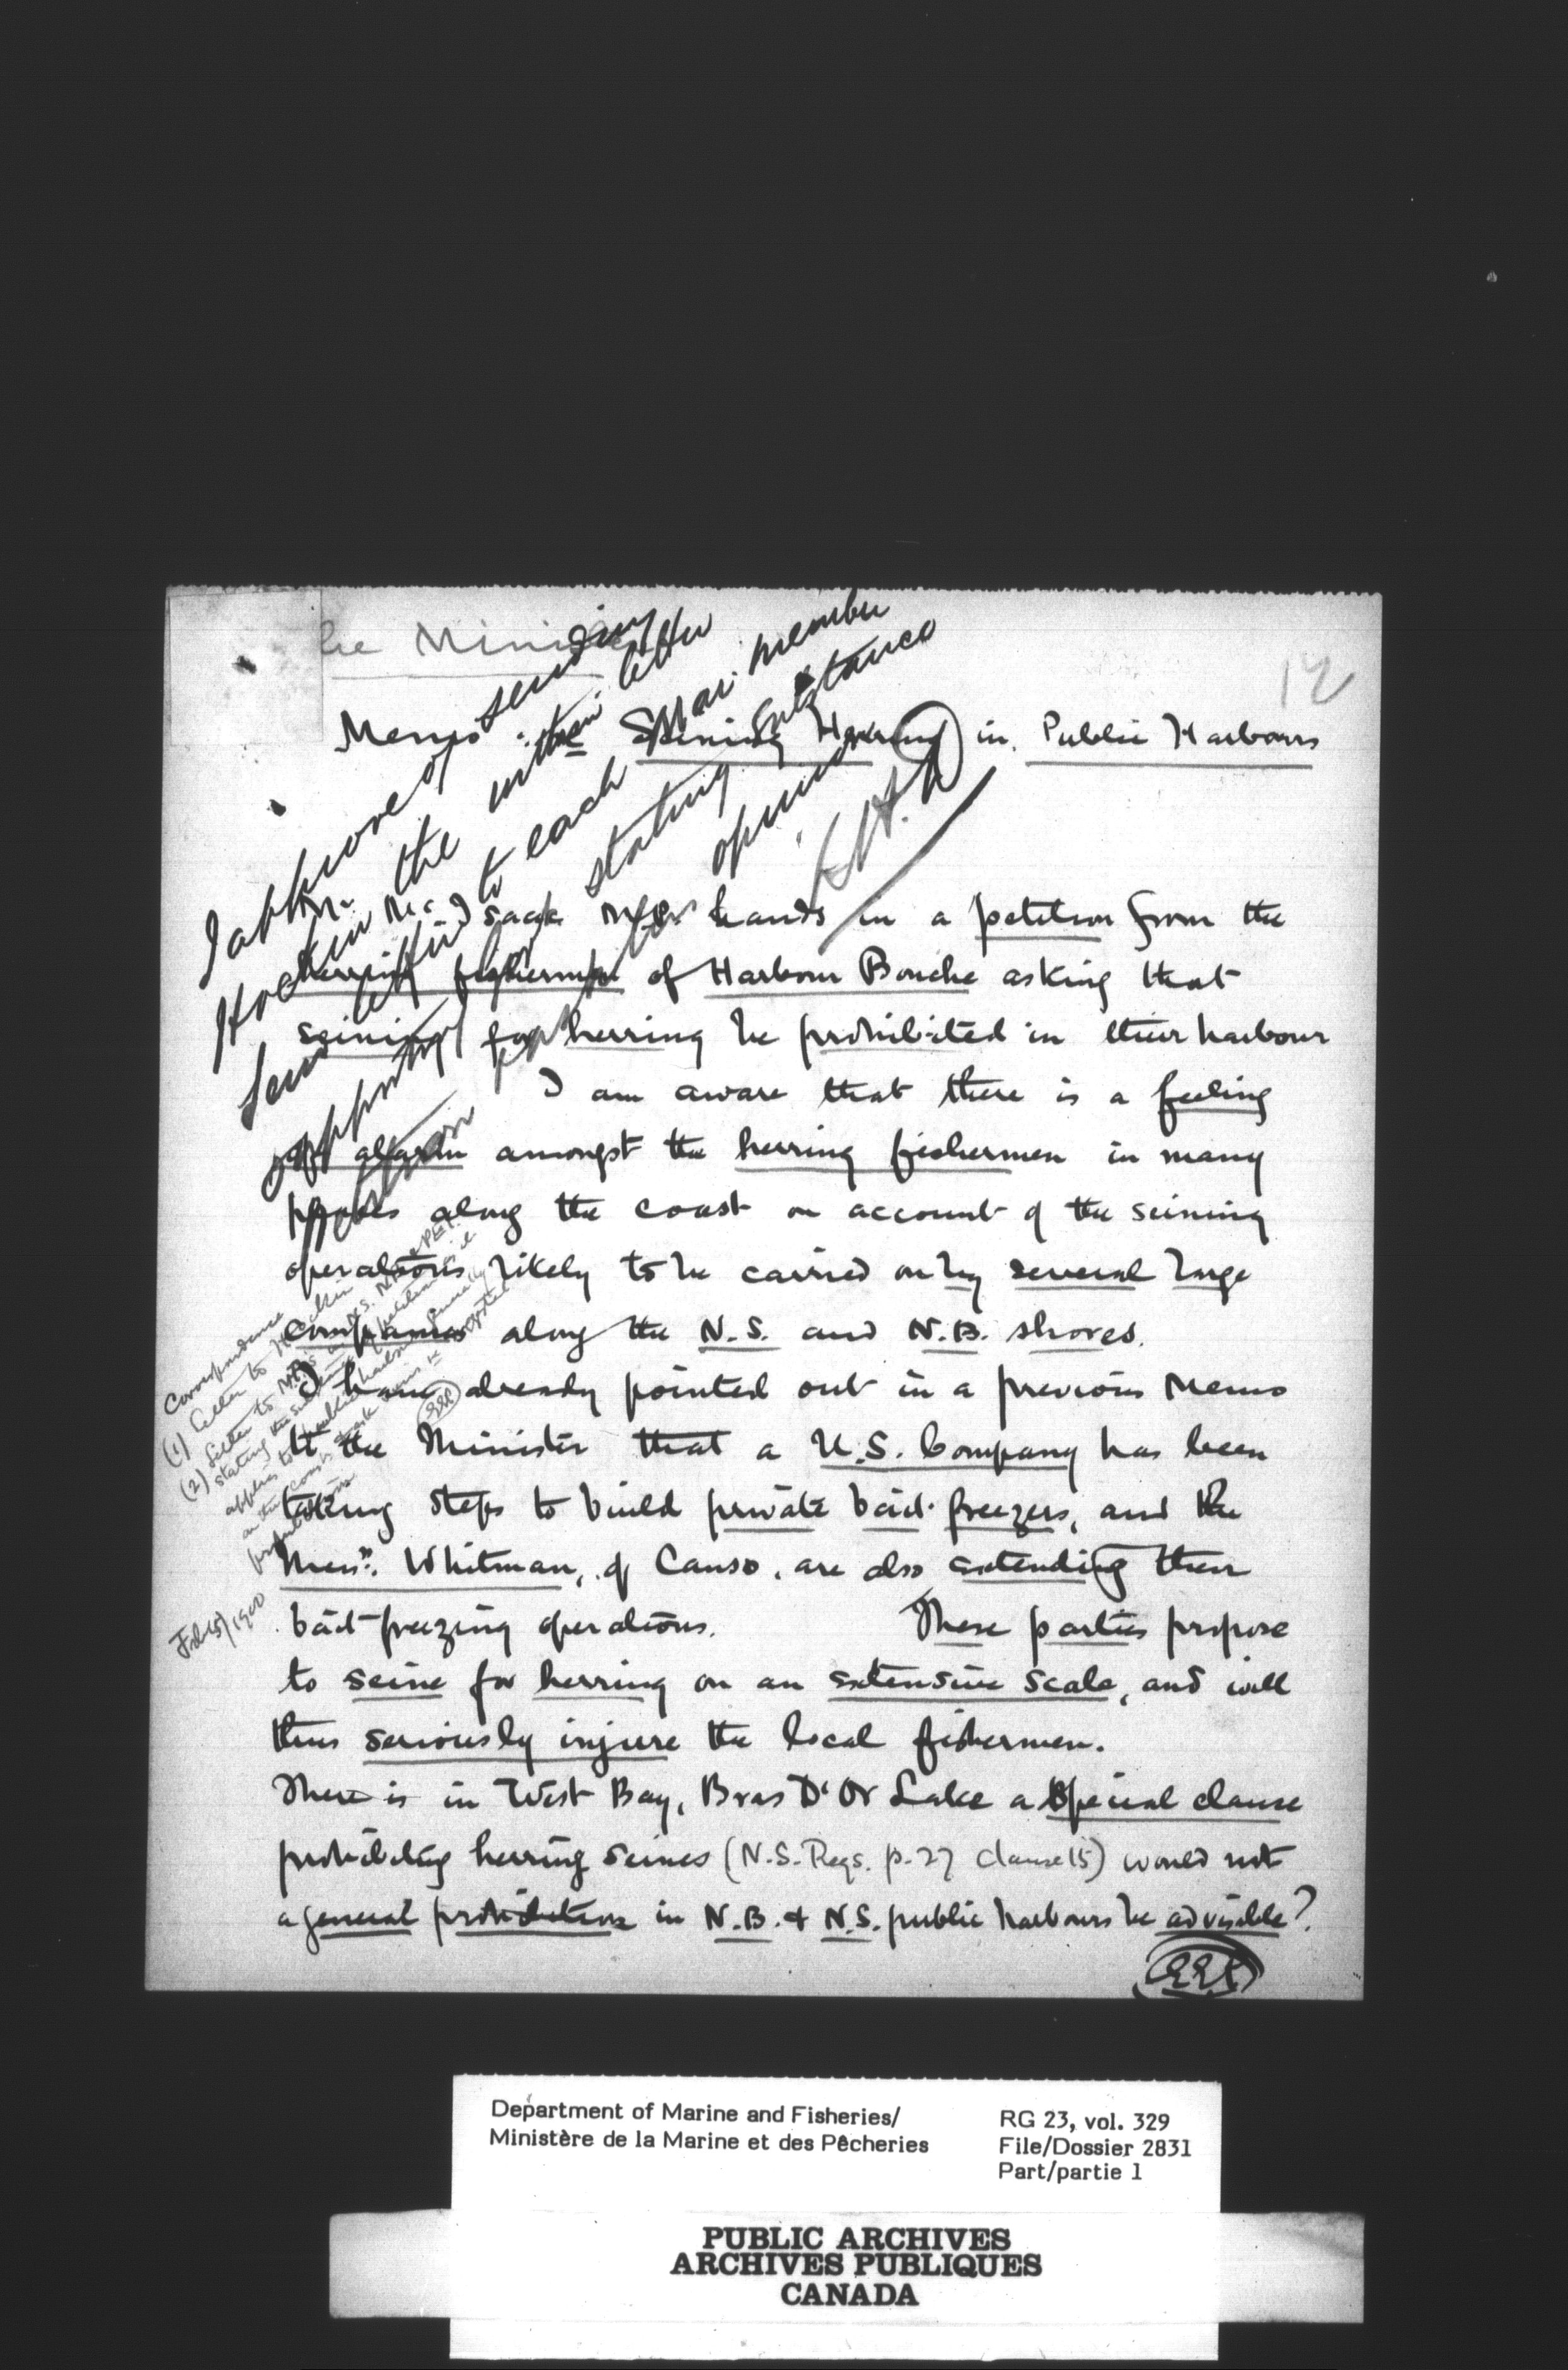 he Minis
12
Memo: the Seining Herring in Public Harbours
hands in a petition from the
herring fishermen of Harbour Bouche asking that
seining for herring be prohibited in their harbour
I am aware that there is a feeling
of alarm amongst the herring fishermen in many
places along the coast on account of the seining
operations likely to be carried on by several large
companies along the N.S. and N.B. shores.
I have already pointed out in a previous Memo
to the Minister that a U.S. Company has been
taking steps to build private bait freezers, and the
Messrs. Whitman, of Canso, are also extending their
bait-freezing operations. These parties propose
to seine for herring on an extensive scale, and will
thus seriously injure the local fishermen.
There is in West Bay, Bras D'Or Lake a special clause
prohibiting herring seines (N.S. Regs. p. 27 clause 15) would not
a general prohibition in N.B. & N.S. public harbours be advisable?
I approve of sending
the within letter
to each Mar. member
stating substance
opinion
Correspondence
(1) Letter to
(2) Letter to M.P.'s
stating the
applies to public harbours generally
on the coast
Feb 15/1900
Department of Marine and Fisheries/
Ministère de la Marine et des Pêcheries
RG 23, vol. 329
File/Dossier 2831
Part/partie 1
PUBLIC ARCHIVES
ARCHIVES PUBLIQUES
CANADA